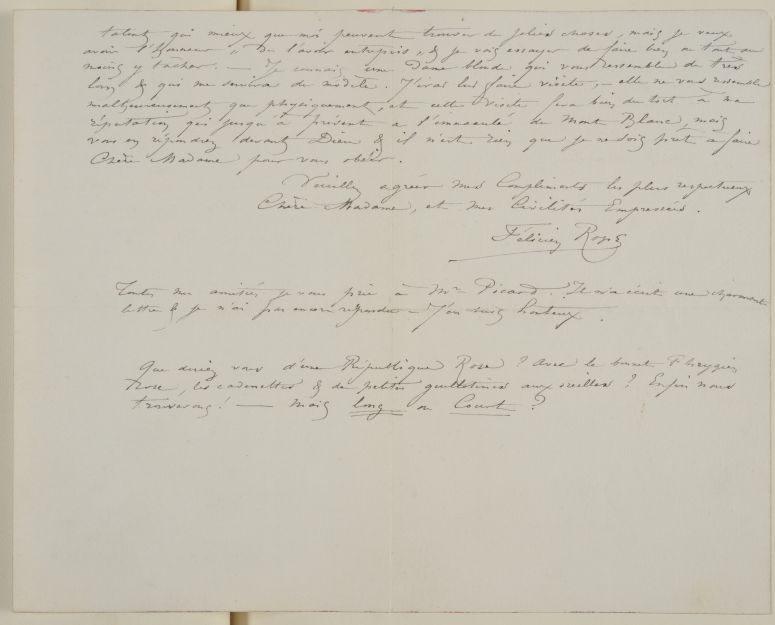 talent qui mieux que moi peuvent trouver de jolies choses, mais je veux
avoir l'honneur « De l'avoir entrepris » & je vais essayer de faire bien ou tout au
moins y tâcher. — Je connais une Dame blonde qui vous ressemble de très
loin & qui me servira de modèle. J'irai lui faire visite, — elle ne vous ressemble
malheureusement que physiquement, et cette visite fera bien du tort à ma
réputation qui jusqu'à présent a l'immaculé du Mont Blanc, mais
vous en répondrez devant Dieu & il n'est rien que je ne sois prêt à faire
Chère Madame pour vous obéir.
Veuillez agréer mes Compliments les plus respectueux
Chère Madame, et mes Civilités Empressées.
Félicien Rops
Toutes mes amitiés je vous prie à Mr Picard. Il m'a écrit une charmante
lettre & je n'ai pas encore répondu — J'en suis honteux.
Que diriez vous d'une République Rose ? Avec le bonnet Phrygien
rose, les cadenettes & de petites guillotines aux oreilles ? Enfin nous
trouverons ! — Mais long ou Court ?